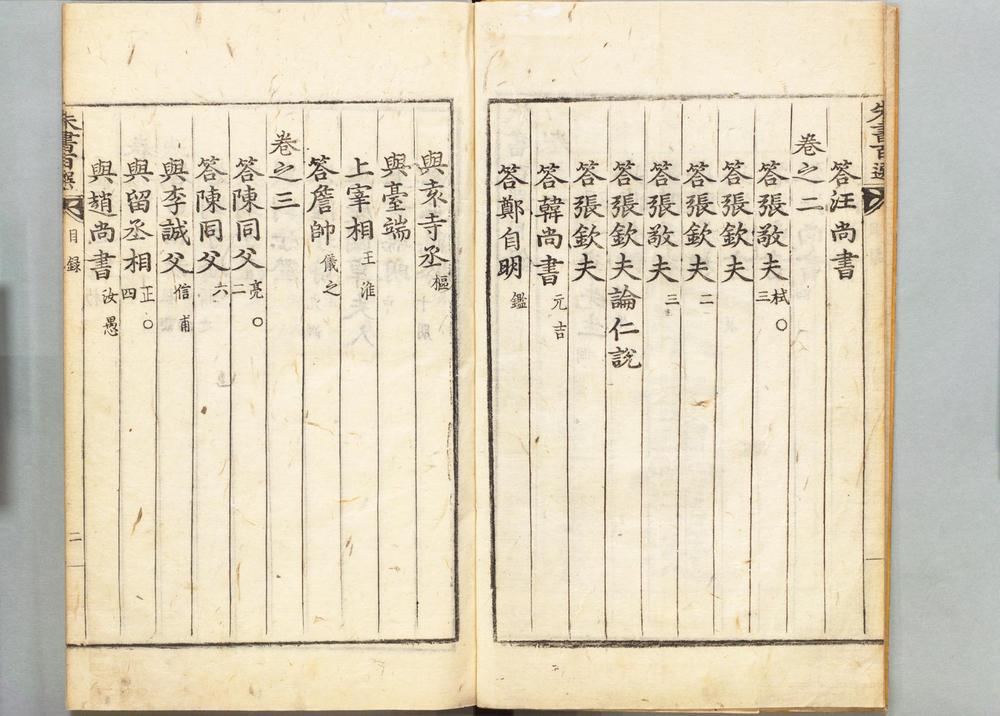 朱書百選
答汪尚書
卷之二
答張敬夫 栻○三
答張欽夫
答張欽夫 二
答張敬夫 三
答張欽夫論仁說
答張欽夫
答韓尚書 元吉
答鄭自明 鑑
與袁寺丞 樞
與臺端
上宰相 王淮
答詹帥 儀之
卷之三
答陳同父 亮○二
答陳同父 六
與李誠父 信甫
與留丞相 正○四
與趙尚書 汝愚
朱書百選 目錄 二